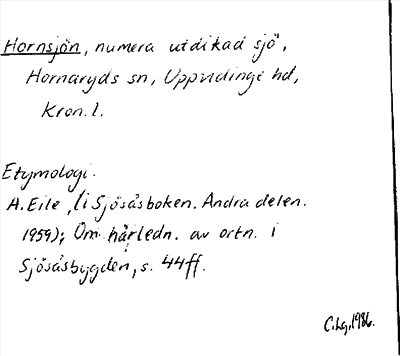 Hornsjön, numera utdikad sjö,
Hornaryds sn, Uppvidinge hd,
Kron. l.
Etymologi.
A. Eile, (i Sjösåsboken. Andra delen.
1959); Om härledn. av ortn. i
Sjösåsbygden, s. 44ff.
C.Lg, 1986.